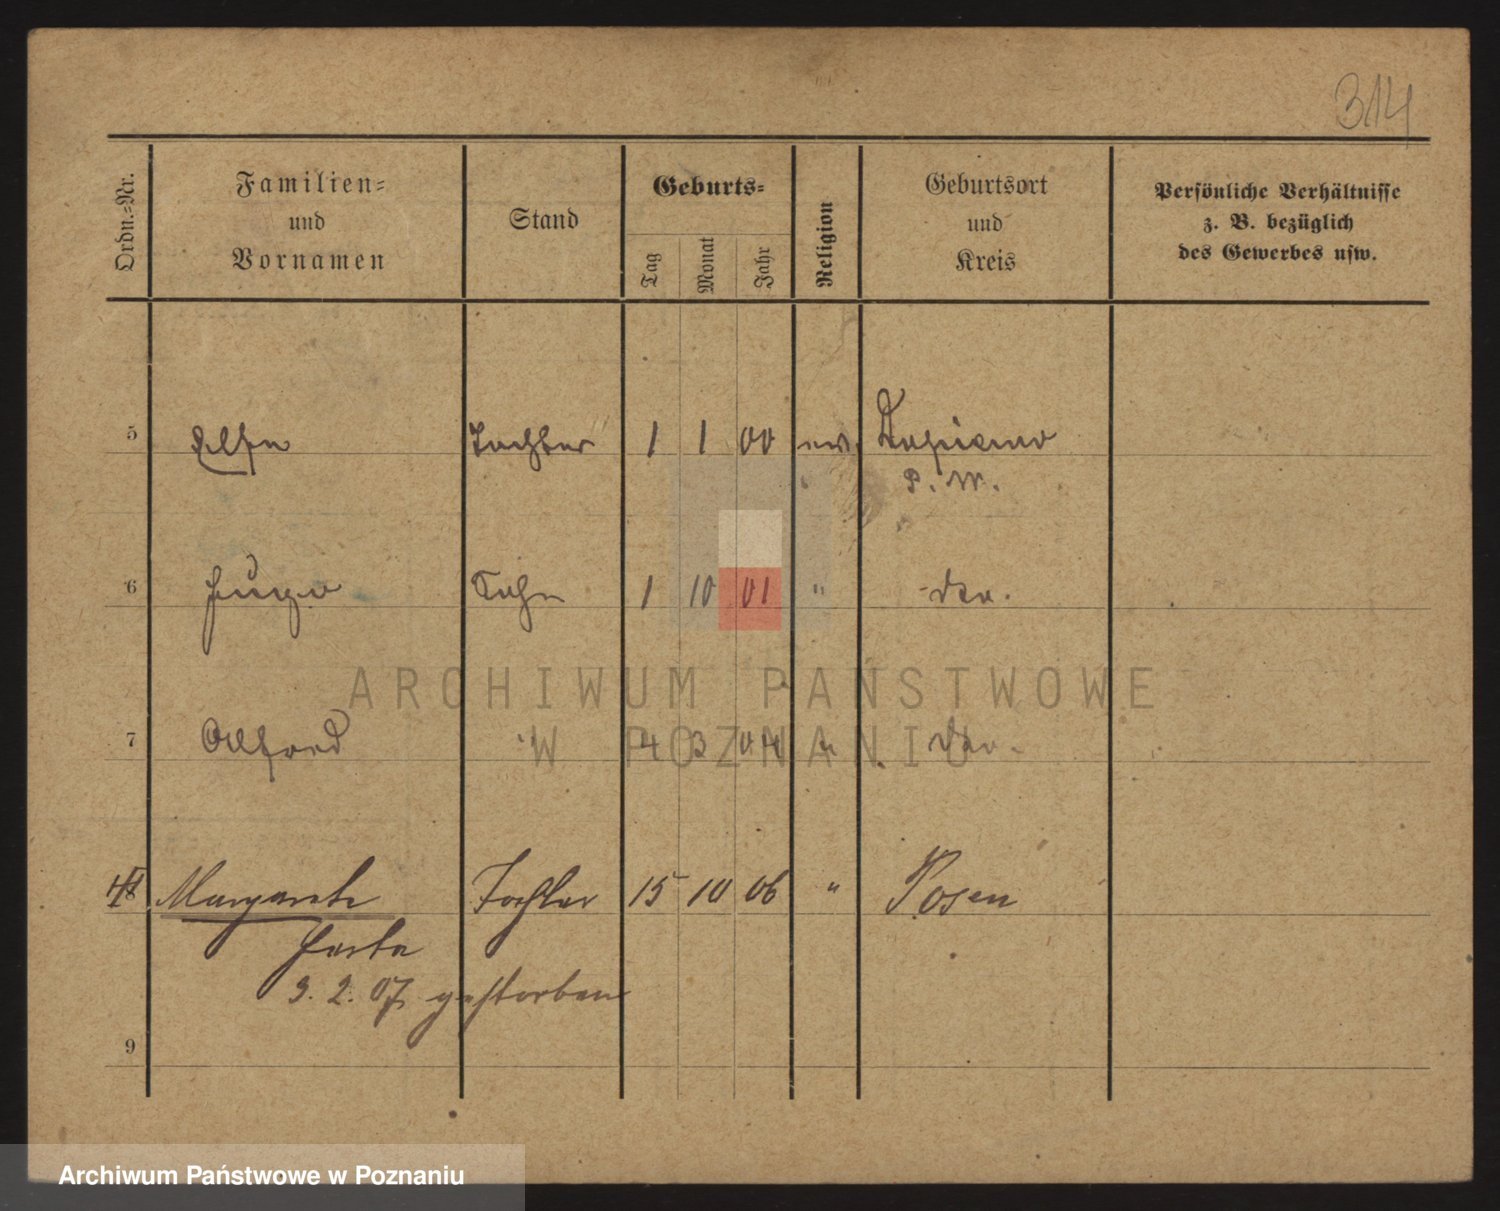 314
Ordn.-Nr.
Familien-
und
Vornamen
Stand
Geburts-
Tag
Monat
Jahr
Religion
Geburtsort
und
Kreis
Persönliche Verhältnisse
z. B. bezüglich
des Gewerbes usw.
5 Else Tochter 1 1 00 ev.
P. W.
6 Hugo Sohn 1 10 01 " dto.
ARCHIWUM PAŃSTWOWE
W POZNANIU
7 Alfred " 4 3 04 " dto.
8 Margarete Tochter 15 10 06 " Posen
Herta
3. 2. 07 gestorben
9
Archiwum Państwowe w Poznaniu